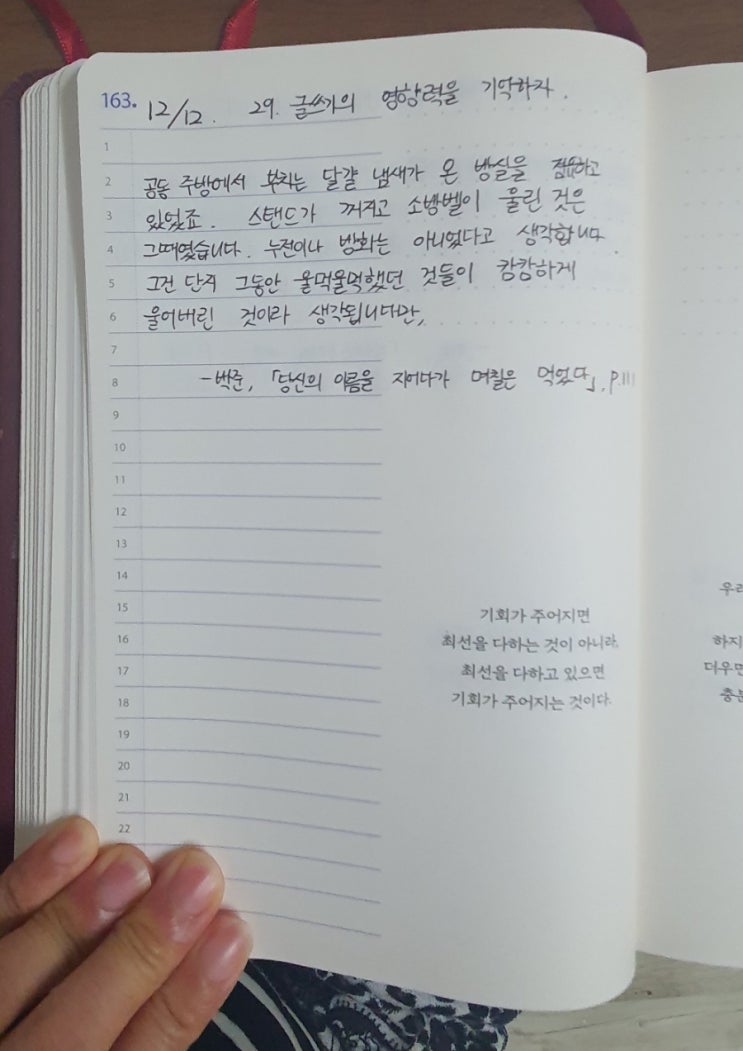 163. 12/12. 29. 글쓰기의 영향력을 기억하자.
1
2 공동 주방에서 부치는 달걀 냄새가 온 방실을 점유하고
3 있었죠. 스탠드가 꺼지고 소방벨이 울린 것은
4 그때였습니다. 누전이나 방화는 아니었다고 생각합니다.
5 그건 단지 그동안 울먹울먹했던 것들이 캉캉하게
6 울어버린 것이라 생각됩니다만,
7
8 -박준, 「당신의 이름을 지어다가 며칠은 먹었다」, p.111
9
10
11
12
13
14
15
16
17
18
19
20
21
22
기회가 주어지면
최선을 다하는 것이 아니라,
최선을 다하고 있으면
기회가 주어지는 것이다.
우리
하지
더우면
충분